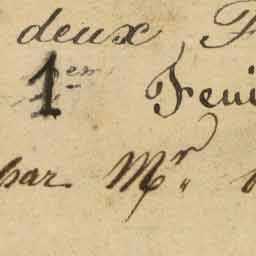 deux F
1er Feui
par Mr.